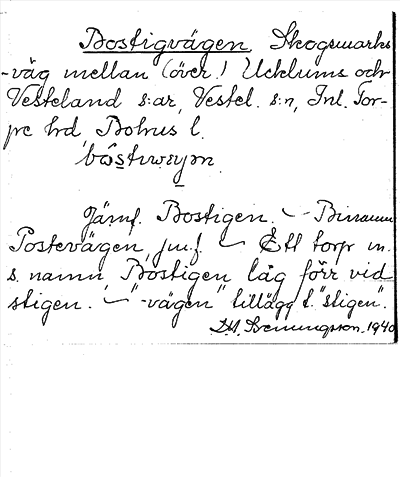 Bostigvägen, Skogsmarks
-väg mellan (över!) Ucklums och
Vesteland s:ar, Vestel. s:n, Inl. Tor-
pe hd, Bohus l.
Jämf. Bostigen. — Binamn
Postevägen, jmf. — Ett torp m.
s. namn, Bostigen låg förr vid
stigen. — "-vägen" tillägg t. "stigen".
1940